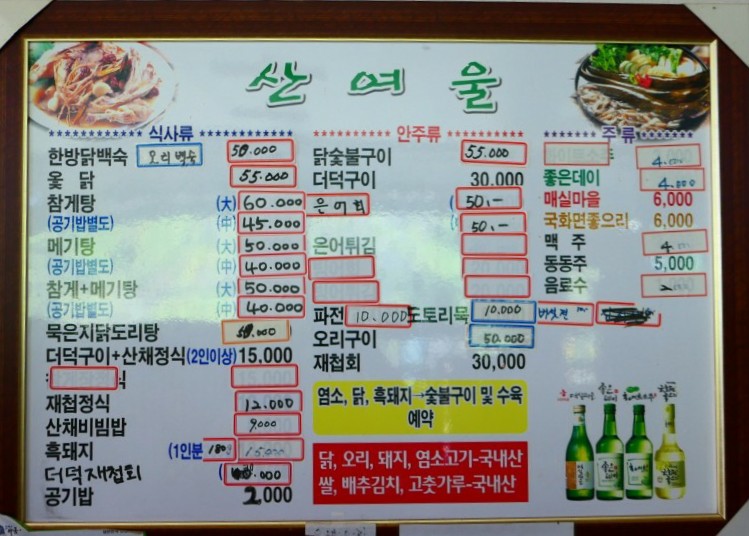 산여울
식사류
한방닭백숙 오리백숙 50.000
옻 닭 55.000
참게탕 (大) 60.000
(공기밥별도) (中) 45.000
메기탕 (大) 50.000
(공기밥별도) (中) 40.000
참게+메기탕 (大) 50.000
(공기밥별도) (中) 40.000
묵은지닭도리탕 50.000
더덕구이+산채정식(2인이상) 15.000
재첩정식 12.000
산채비빔밥 9,000
흑돼지 (1인분 180g 15.000
더덕재첩회
공기밥 2,000
안주류
닭숯불구이 55.000
더덕구이 30.000
은어회 ( 50,-
( 50,-
은어튀김
파전 10.000 도토리묵 10.000 버섯전
오리구이 50.000
재첩회 30,000
염소, 닭, 흑돼지→숯불구이 및 수육
예약
닭, 오리, 돼지, 염소고기-국내산
쌀, 배추김치, 고춧가루-국내산
주 류
4.000
좋은데이 4.000
매실마을 6,000
국화면좋으리 6,000
맥 주 4.000
동동주 5,000
음료수